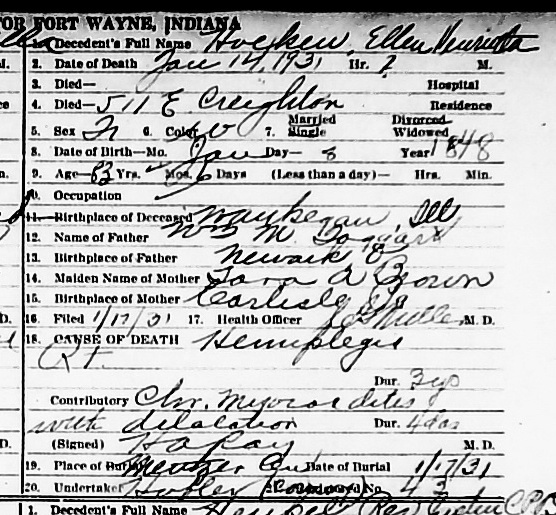 OR FORT WAYNE, INDIANA
1. Decedent's Full Name Hocken, Ellen Henrietta
2. Date of Death Jan 14, 1931 Hr. 2 M.
3. Died— Hospital
4. Died— 511 E Creighton Residence
5. Sex F 6. Color W 7. Married Single Divorced Widowed
8. Date of Birth—Mo. Jan Day— 8 Year 1848
9. Age— 83 Yrs. Mos. 6 Days (Less than a day)— Hrs. Min.
10. Occupation
11. Birthplace of Deceased Waukegan, Ill
12. Name of Father Wm M.
13. Birthplace of Father Newark O
14. Maiden Name of Mother Sara A Brown
15. Birthplace of Mother Carlisle
16. Filed 1/17/31 17. Health Officer M. D.
18. CAUSE OF DEATH Hemiplegia
Rt.
Dur. 3 ys
Contributory Chr. Myocarditis
with dilatation Dur. 4 das
(Signed) H A Ray M. D.
19. Place of Burial Cem Date of Burial 1/17/31
20. Undertaker No. 43
1. Decedent's Full Name